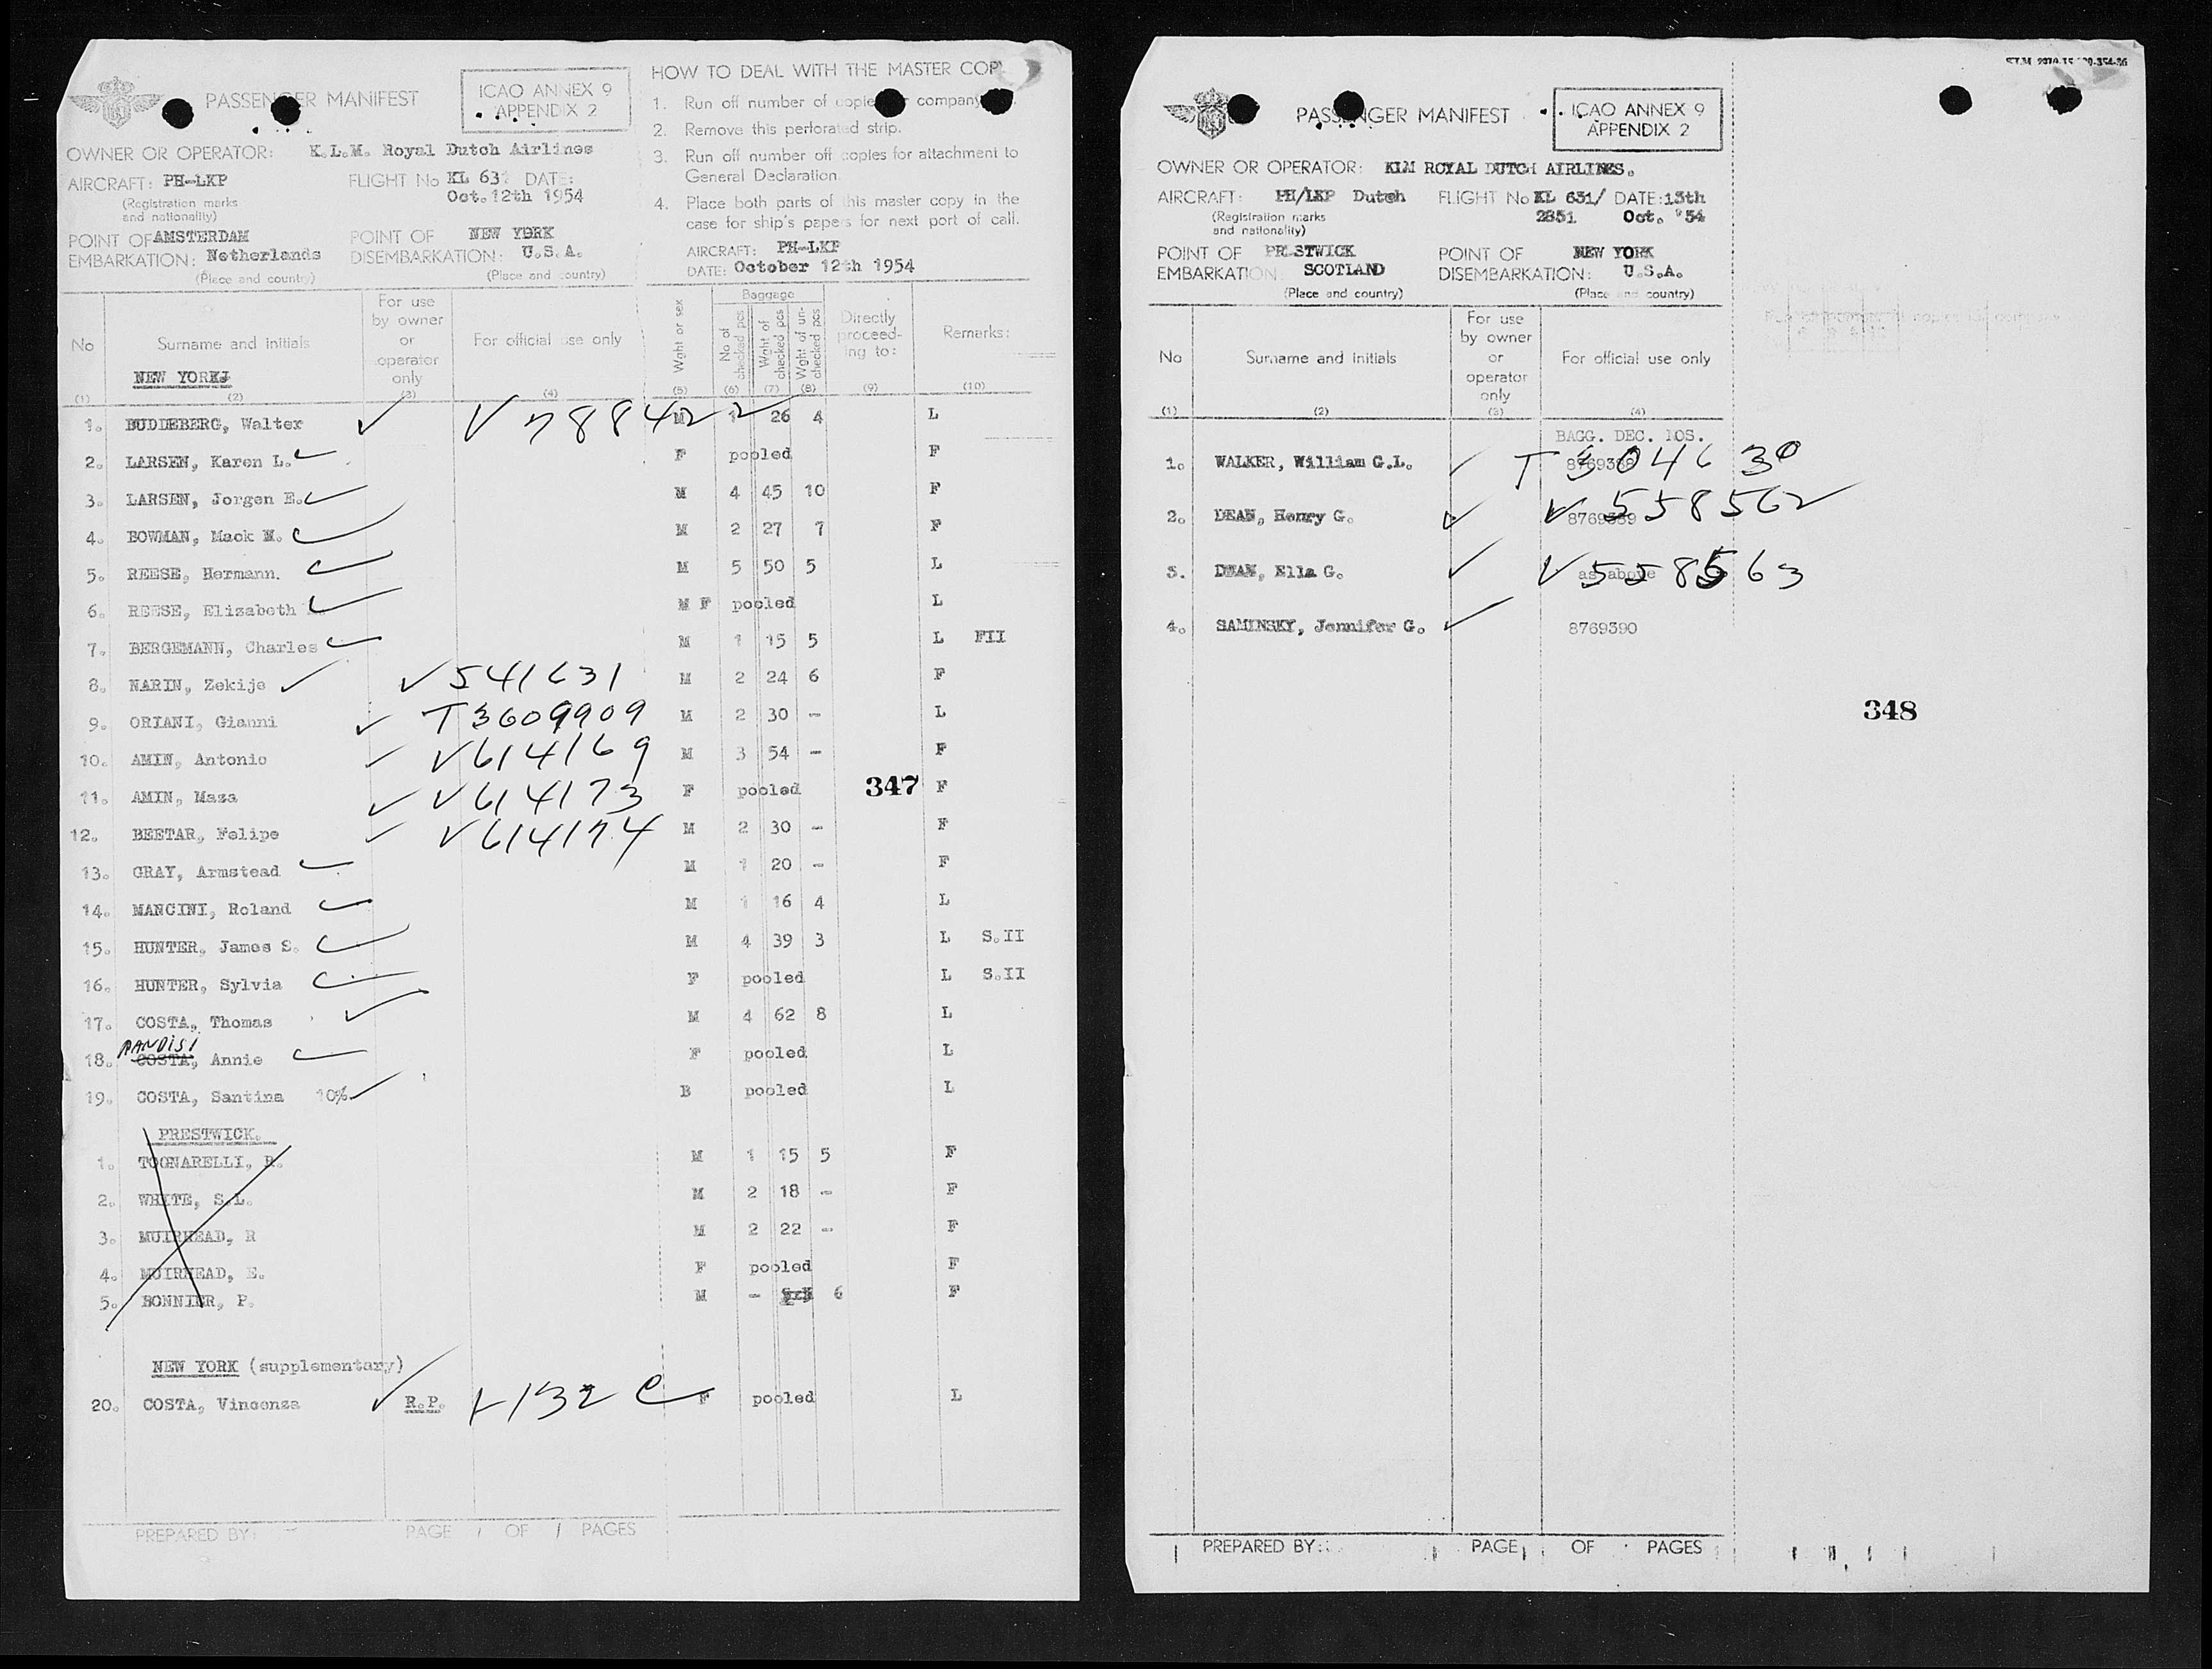 PASSENGER MANIFEST
ICAO ANNEX 9
APPENDIX 2
OWNER OR OPERATOR: K.L.M. Royal Dutch Airlines
AIRCRAFT: PH-LKP FLIGHT No KL 631 DATE:
(Registration marks Oct.12th 1954
and nationality)
POINT OF AMSTERDAM POINT OF NEW YORK
EMBARKATION: Netherlands DISEMBARKATION: U.S.A.
(Place and country) (Place and country)
HOW TO DEAL WITH THE MASTER COPY
1. Run off number of copies for company
2. Remove this perforated strip.
3. Run off number off copies for attachment to
General Declaration.
4. Place both parts of this master copy in the
case for ship's papers for next port of call.
AIRCRAFT: PH-LKP
DATE: October 12th 1954
No Surname and initials For use by owner or operator only For official use only Wght or sex Baggage No of checked pcs Wght of checked pcs Wght of un-checked pcs Directly proceed-ing to: Remarks:
NEW YORK
(1) (2) (3) (4) (5) (6) (7) (8) (9) (10)
1. BUDDEBERG, Walter V788422 M 1 26 4 L
2. LARSEN, Karen L. F pooled F
3. LARSEN, Jorgen E. M 4 45 10 F
4. BOWMAN, Mack M. M 2 27 7 F
5. REESE, Hermann. M 5 50 5 L
6. REESE, Elizabeth M F pooled L
7. BERGEMANN, Charles M 1 15 5 L FII
8. NARIN, Zekije V541631 M 2 24 6 F
9. ORIANI, Gianni T3609909 M 2 30 - L
10. AMIN, Antonio V614169 M 3 54 - F
11. AMIN, Maza V614173 F pooled 347 F
12. BEETAR, Felipe V614174 M 2 30 - F
13. GRAY, Armstead M 1 20 - F
14. MANCINI, Roland M 1 16 4 L
15. HUNTER, James S. M 4 39 3 L S.II
16. HUNTER, Sylvia F pooled L S.II
17. COSTA, Thomas M 4 62 8 L
18. COSTA, Annie F pooled L
19. COSTA, Santina 10% B pooled L
PRESTWICK.
1. TOGNARELLI, R. M 1 15 5 F
2. WHITE, S.L. M 2 18 - F
3. MUIRHEAD, R M 2 22 - F
4. MUIRHEAD, E. F pooled F
5. BONNIER, P. M - 6 F
NEW YORK (supplementary)
20. COSTA, Vincenza R.P. F pooled L
PREPARED BY: PAGE 1 OF 1 PAGES
PASSENGER MANIFEST
ICAO ANNEX 9
APPENDIX 2
OWNER OR OPERATOR: KLM ROYAL DUTCH AIRLINES.
AIRCRAFT: PH/LKP Dutch FLIGHT No KL 631/ DATE: 13th
(Registration marks 2851 Oct. '54
and nationality)
POINT OF PRESTWICK POINT OF NEW YORK
EMBARKATION: SCOTLAND DISEMBARKATION: U.S.A.
(Place and country) (Place and country)
No Surname and initials For use by owner or operator only For official use only
(1) (2) (3) (4)
BAGG. DEC. NOS.
1. WALKER, William G.L. 8769388 T
2. DEAN, Henry G. 8769389 V558562
3. DEAN, Ella G. as above V558563
4. SAMINSKY, Jennifer G. 8769390
348
PREPARED BY: PAGE OF PAGES